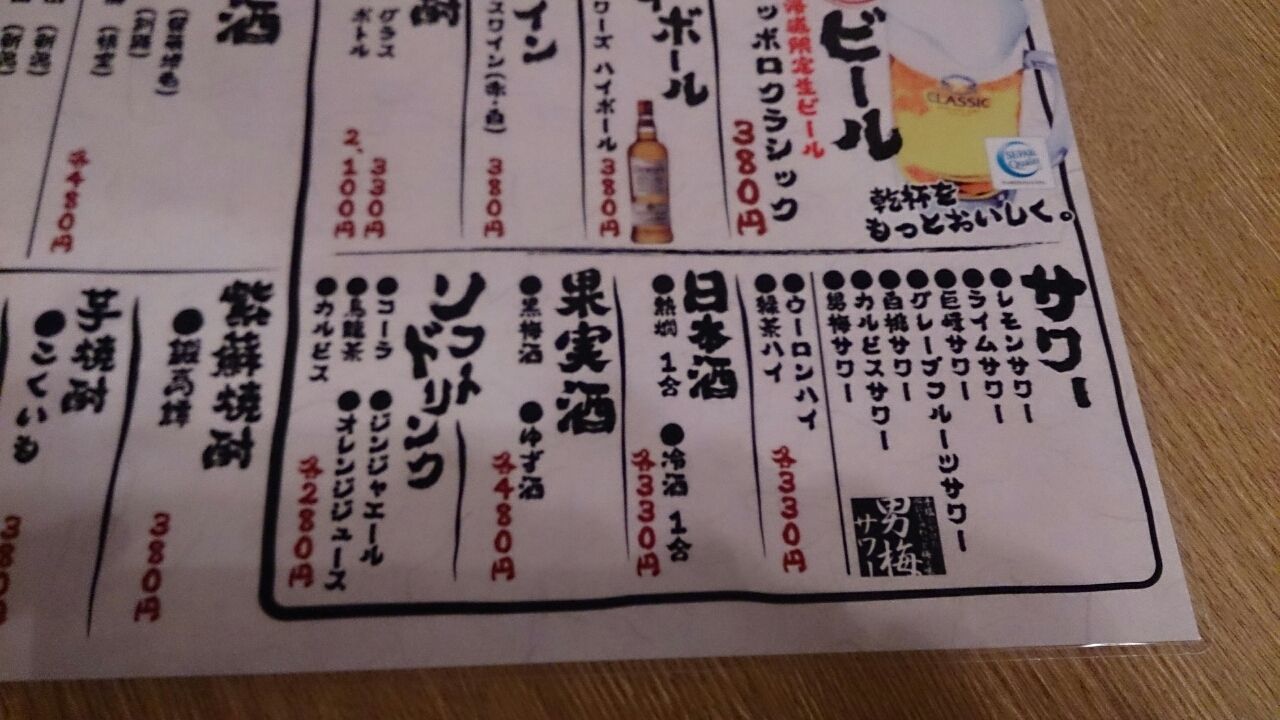 ビール
海道限定生ビール
ッポロクラシック
380円
CLASSIC
SEPAR
Quality
乾杯を
もっとおいしく。
イボール
ワーズ ハイボール
380円
イン
スワイン(赤・白)
380円
酎
グラス
330円
ボトル
2,100円
酒
各480円
サワー
●レモンサワー
●ライムサワー
●巨峰サワー
●グレープフルーツサワー
●白桃サワー
●カルピスサワー
●男梅サワー
男梅
サワー
●ウーロンハイ
●緑茶ハイ
各330円
日本酒
●熱燗 1合
●冷酒 1合
各330円
果実酒
●黒梅酒
●ゆず酒
各480円
ソフトドリンク
●コーラ
●烏龍茶
●カルピス
●ジンジャエール
●オレンジジュース
各280円
紫蘇焼酎
●鍛高譚
380円
芋焼酎
●こくいも
380円